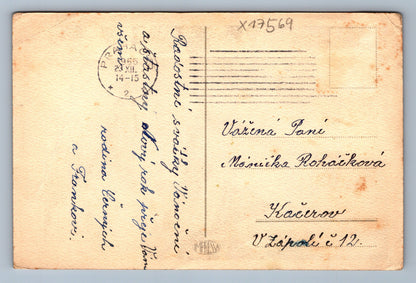 X17569
PRAHA
1966
21.XII.
14-15
2
Radostné svátky Vánoční
a šťastný Nový rok přeje Vám
všem
rodina Černých
a Frankovi.
Vážená Paní
Roháčková
Kačerov
V Zápolí č 12.